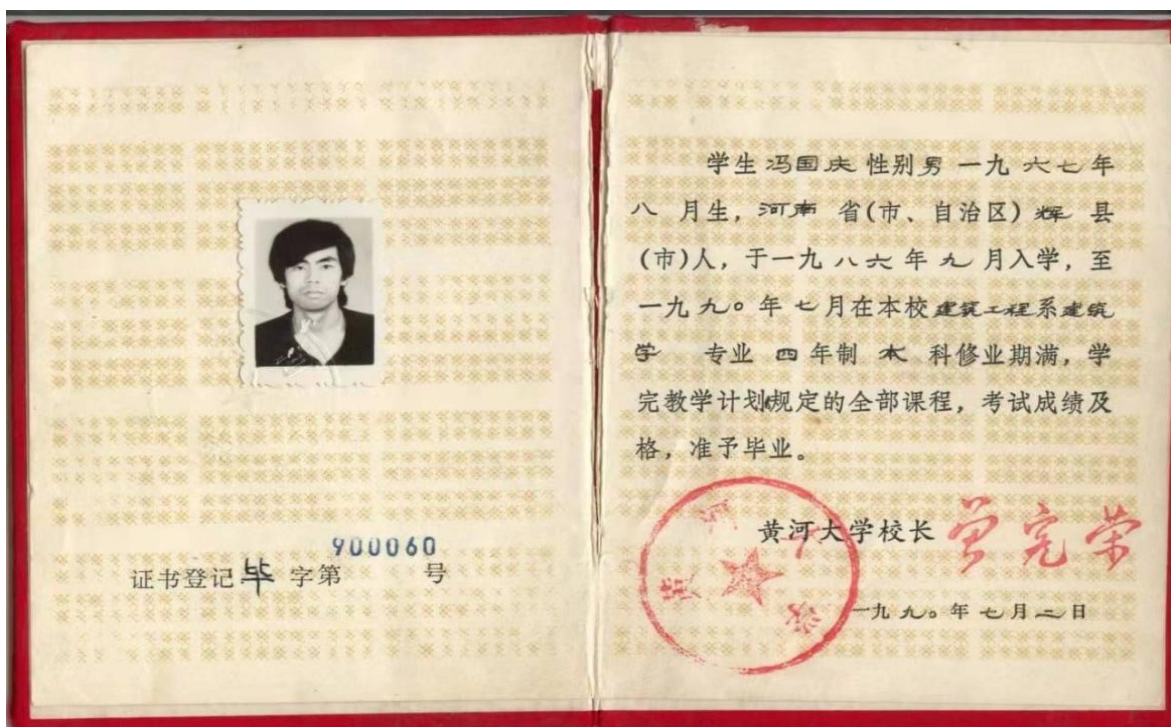 900060
证书登记毕字第 号
学生冯国庆性别男一九六七年
八月生,河南省(市、自治区)辉县
(市)人,于一九八六年九月入学,至
一九九〇年七月在本校建筑工程系建筑
学 专业四年制本科修业期满,学
完教学计划规定的全部课程,考试成绩及
格,准予毕业。
黄河大学
黄河大学校长
一九九〇年七月二日